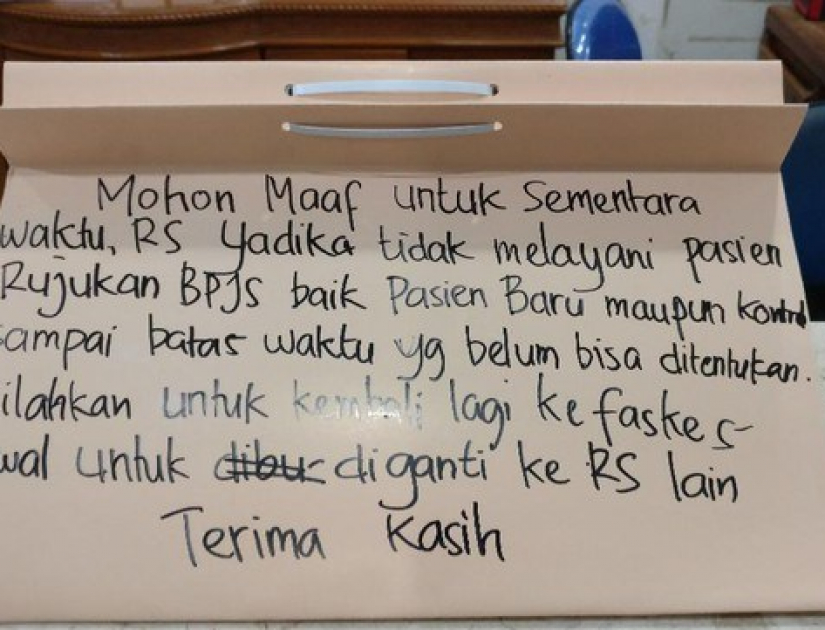 Mohon Maaf untuk Sementara
waktu, RS Yadika tidak melayani pasien
Rujukan BPJS baik Pasien Baru maupun kontrol
sampai batas waktu yg belum bisa ditentukan.
ilahkan untuk kembali lagi ke faskes
wal untuk dibu diganti ke RS lain
Terima Kasih